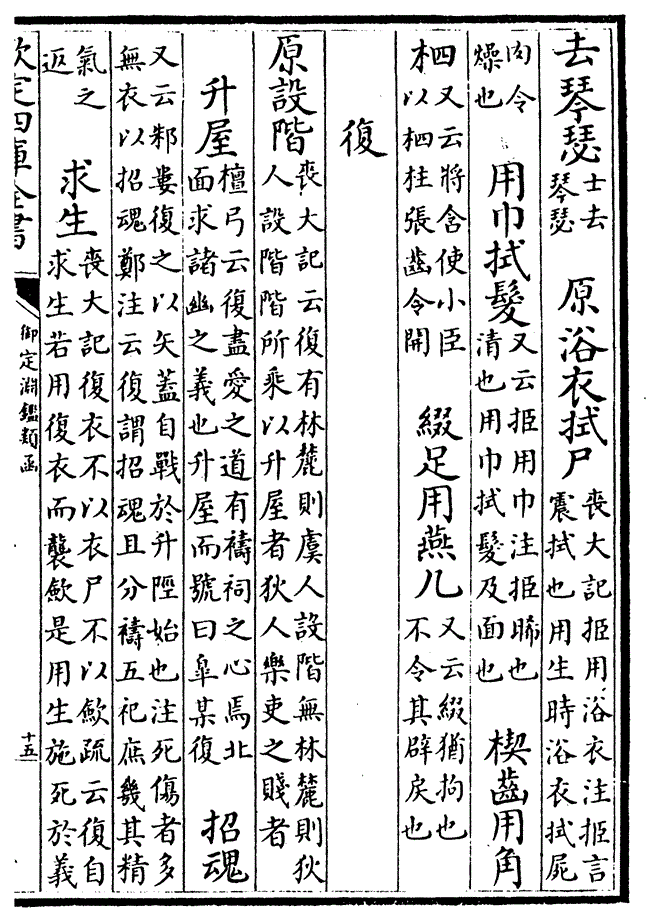 去琴瑟士去琴瑟 原浴衣拭尸喪大記挋用浴衣注挋言震拭也用生時浴衣拭屍
肉令燥也 用巾拭髮又云挋用巾注挋晞也清也用巾拭髮及面也 楔齒用角
柶又云將含使小臣以柶拄張齒令開 綴足用燕几又云綴猶拘也不令其辟戾也
復
原設階喪大記云復有林麓則虞人設階無林麓則狄人設階階所乘以升屋者狄人樂吏之賤者
升屋檀弓云復盡愛之道有禱祠之心焉北面求諸幽之義也升屋而號曰皐某復 招魂
又云邾婁復之以矢蓋自戰於升陘始也注死傷者多無衣以招魂鄭注云復謂招魂且分禱五祀庶幾其精
氣之返 求生喪大記復衣不以衣尸不以歛疏云復自求生若用復衣而襲歛是用生施死於義
欽定四庫全書 御定淵鑑類函 十五